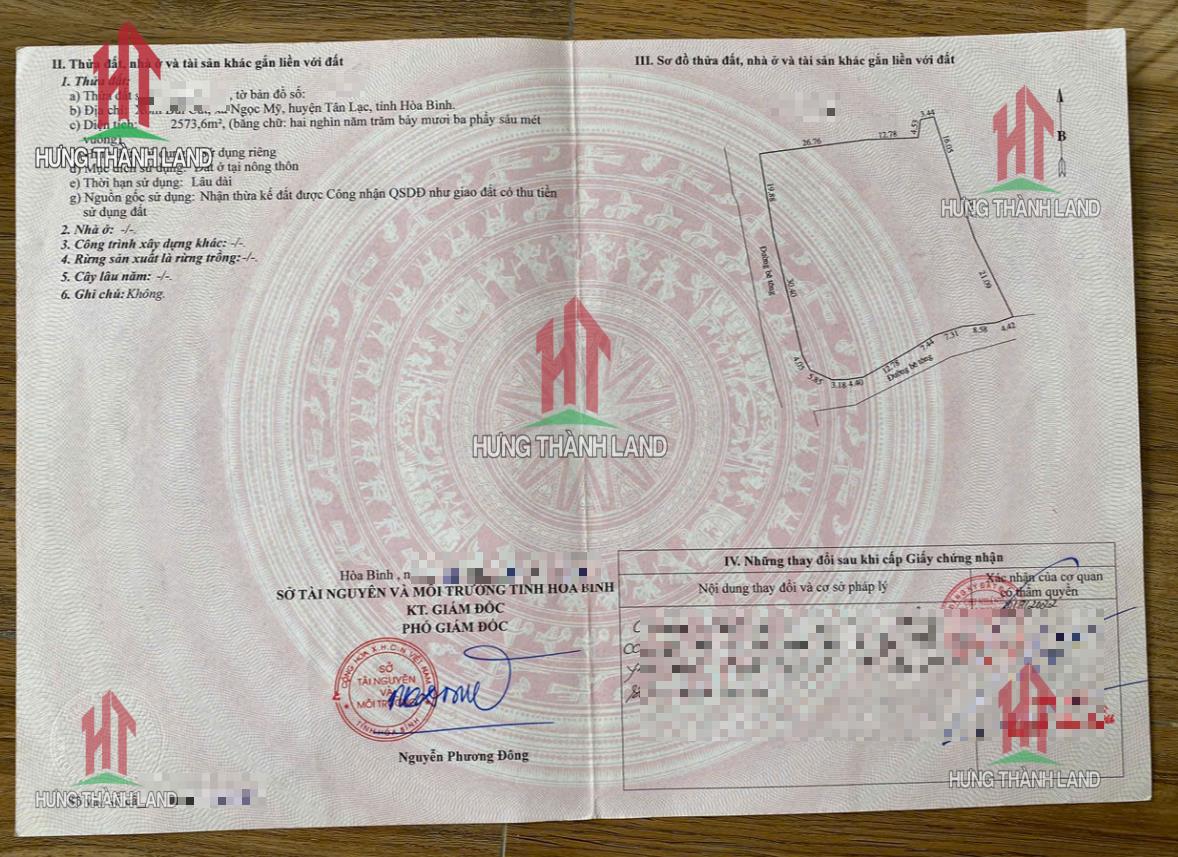 II. Thửa đất, nhà ở và tài sản khác gắn liền với đất
1. Thửa đất:
a) Thửa đất s , tờ bản đồ số:
b) Địa chỉ: Ngọc Mỹ, huyện Tân Lạc, tỉnh Hòa Bình.
c) Diện tích: 2573,6m², (bằng chữ: hai nghìn năm trăm bảy mươi ba phẩy sáu mét
vuông)
sử dụng riêng
đ) Mục đích sử dụng: Đất ở tại nông thôn
e) Thời hạn sử dụng: Lâu dài
g) Nguồn gốc sử dụng: Nhận thừa kế đất được Công nhận QSDĐ như giao đất có thu tiền
sử dụng đất
2. Nhà ở: -/-
3. Công trình xây dựng khác: -/-
4. Rừng sản xuất là rừng trồng:-/-
5. Cây lâu năm: -/-
6. Ghi chú: Không.
HT
HƯNG THÀNH LAND
III. Sơ đồ thửa đất, nhà ở và tài sản khác gắn liền với đất
26.76
12.78
4.53
3.44
16.05
B
19.88
Đường bê tông
30.40
21.09
4.05
5.85
3.18
4.40
12.78
7.44
7.31
8.58
4.42
Đường bê tông
HT
HƯNG THÀNH LAND
HT
HƯNG THÀNH LAND
Hòa Bình , n
SỞ TÀI NGUYÊN VÀ MÔI TRƯỜNG TỈNH HÒA BÌNH
KT. GIÁM ĐỐC
PHÓ GIÁM ĐỐC
CỘNG HÒA X.H.C.N VIỆT NAM
SỞ
TÀI NGUYÊN
VÀ
MÔI TRƯỜNG
TỈNH HÒA BÌNH
Nguyễn Phương Đông
IV. Những thay đổi sau khi cấp Giấy chứng nhận
Nội dung thay đổi và cơ sở pháp lý
Xác nhận của cơ quan
có thẩm quyền
HT
HƯNG THÀNH LAND
HT
HƯNG THÀNH LAND